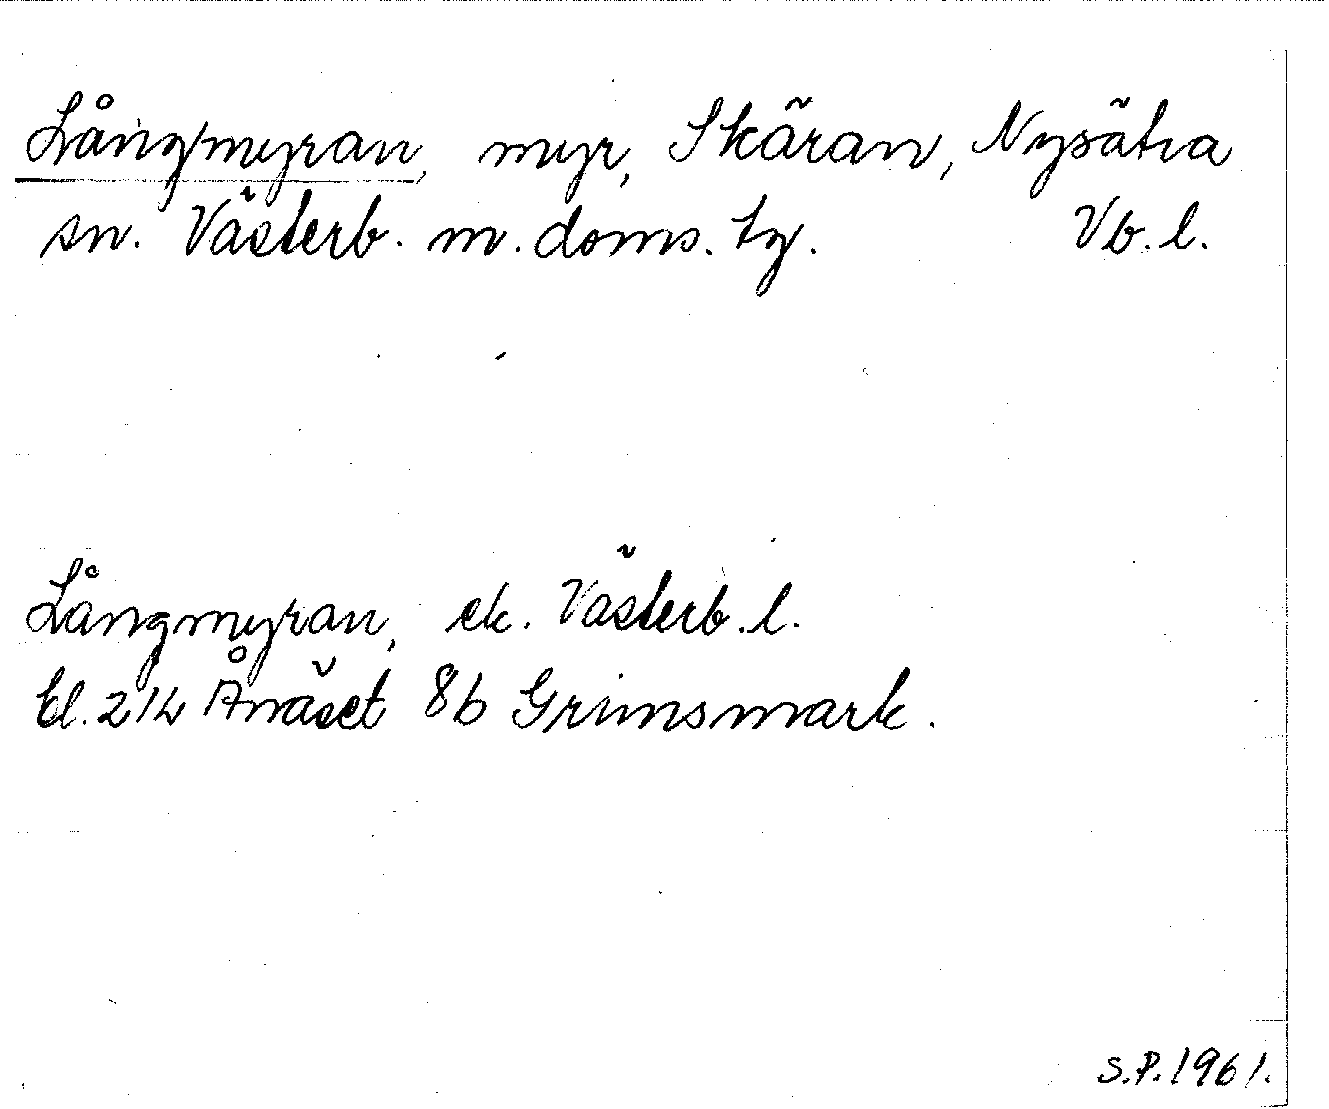 Lång/myran, myr, Skäran, Nysätra
sn. Västerb. m. doms. tg. Vb. l.
Långmyran, ek. Västerb. l.
bl. 214 Ånäset 8b Grimsmark.
S.P. 1961.